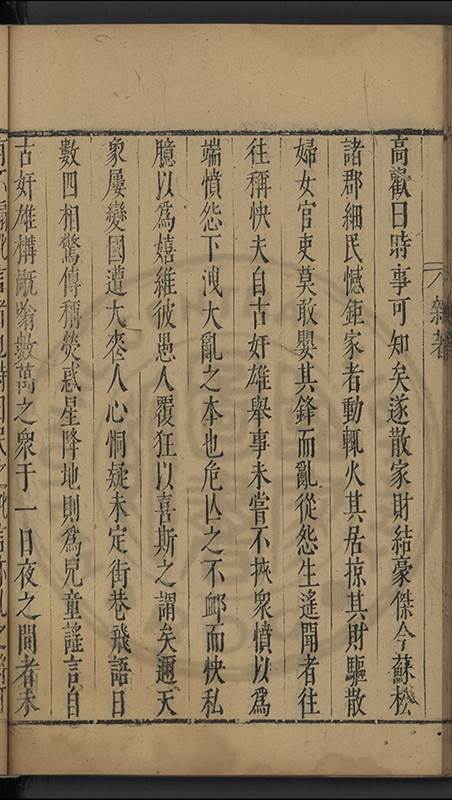 雜著
高歡曰時事可知矣遂散家財結豪傑今蘇松
諸郡細民憾鉅家者動輒火其居掠其財驅散
婦女官吏莫敢嬰其鋒而亂從怨生遙聞者往
往稱快夫自古奸雄舉事未嘗不挾衆憤以爲
端憤怨下洩大亂之本也危亾之不卹而快私
臆以爲嬉維彼愚人覆狂以喜斯之謂矣邇天
象屢變國遭大喪人心恫疑未定街巷飛語日
數四相驚傳稱熒惑星降地則爲兒童謠言自
古奸雄搆煽數萬之衆于一日夜之間者未